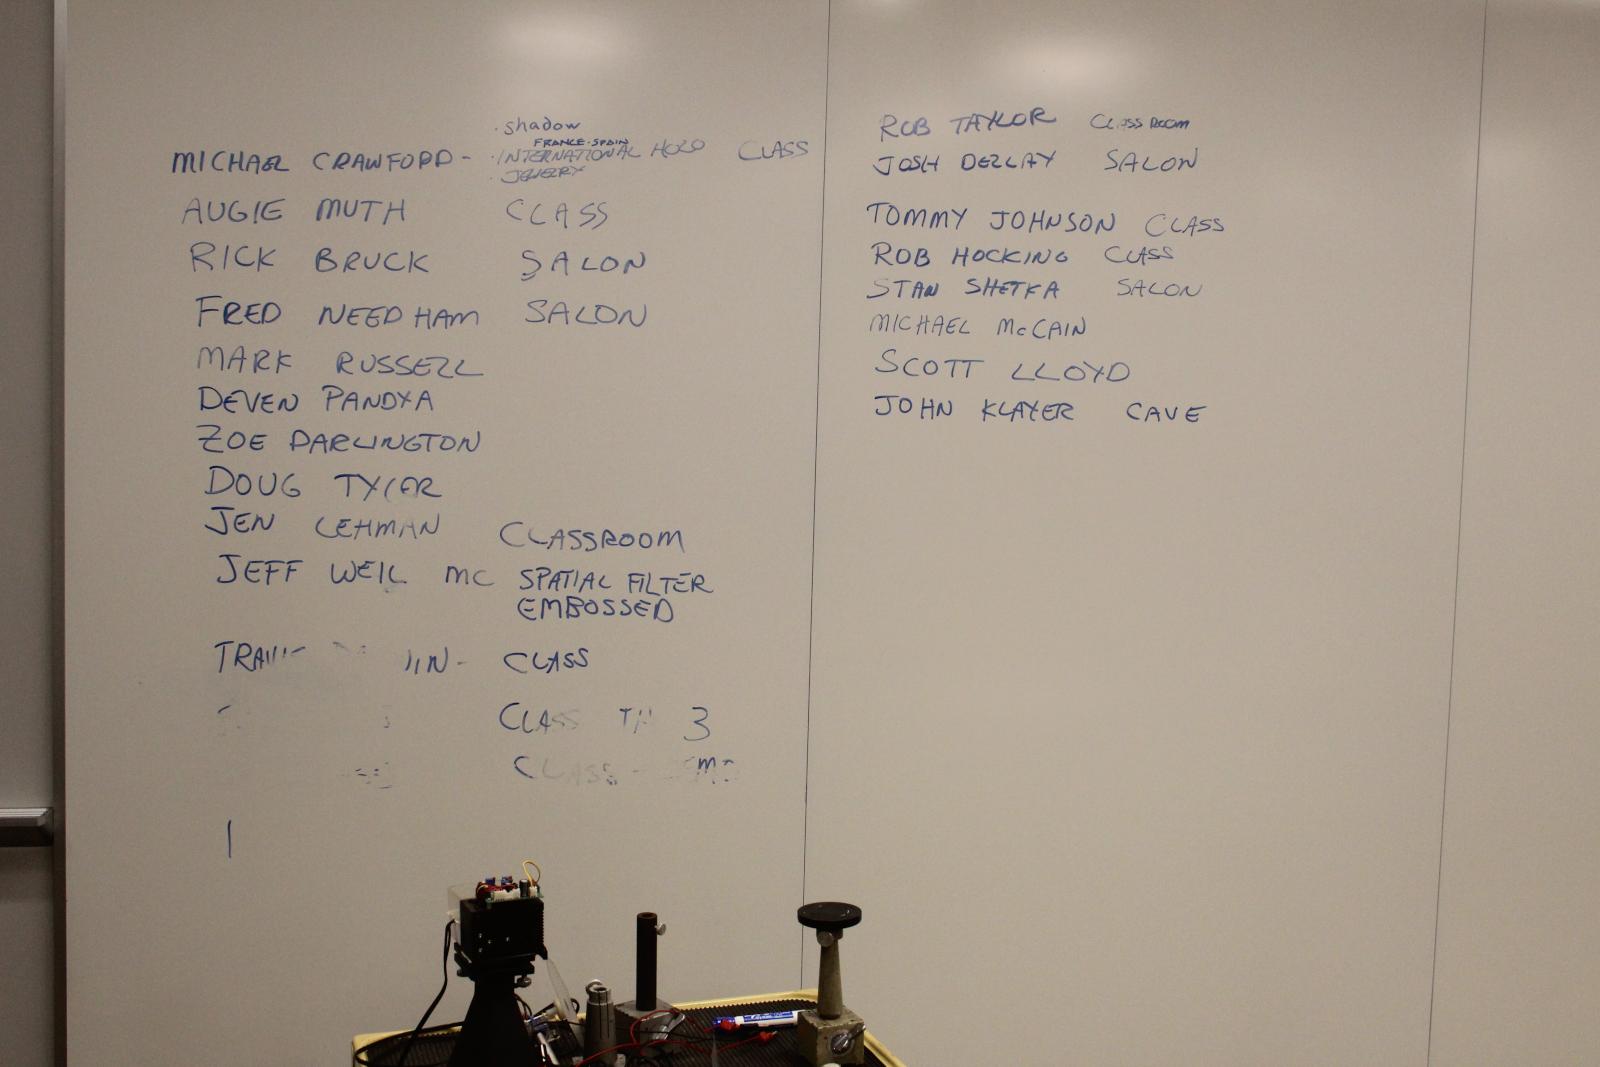 shadow
FRANCE·SPAIN
MICHAEL CRAWFORD- INTERNATIONAL HOLO CLASS
JEWELRY
AUGIE MUTH CLASS
RICK BRUCK SALON
FRED NEEDHAM SALON
MARK RUSSELL
DEVEN PANDYA
ZOE DARLINGTON
DOUG TYLER
JEN LEHMAN CLASSROOM
JEFF WEIL MC SPATIAL FILTER
EMBOSSED
CLASS
CLASS 3
CLASS
ROB TAYLOR CLASSROOM
JOSH DEZLAY SALON
TOMMY JOHNSON CLASS
ROB HOCKING CLASS
STAN SHETKA SALON
MICHAEL McCAIN
SCOTT LLOYD
JOHN KLAYER CAVE